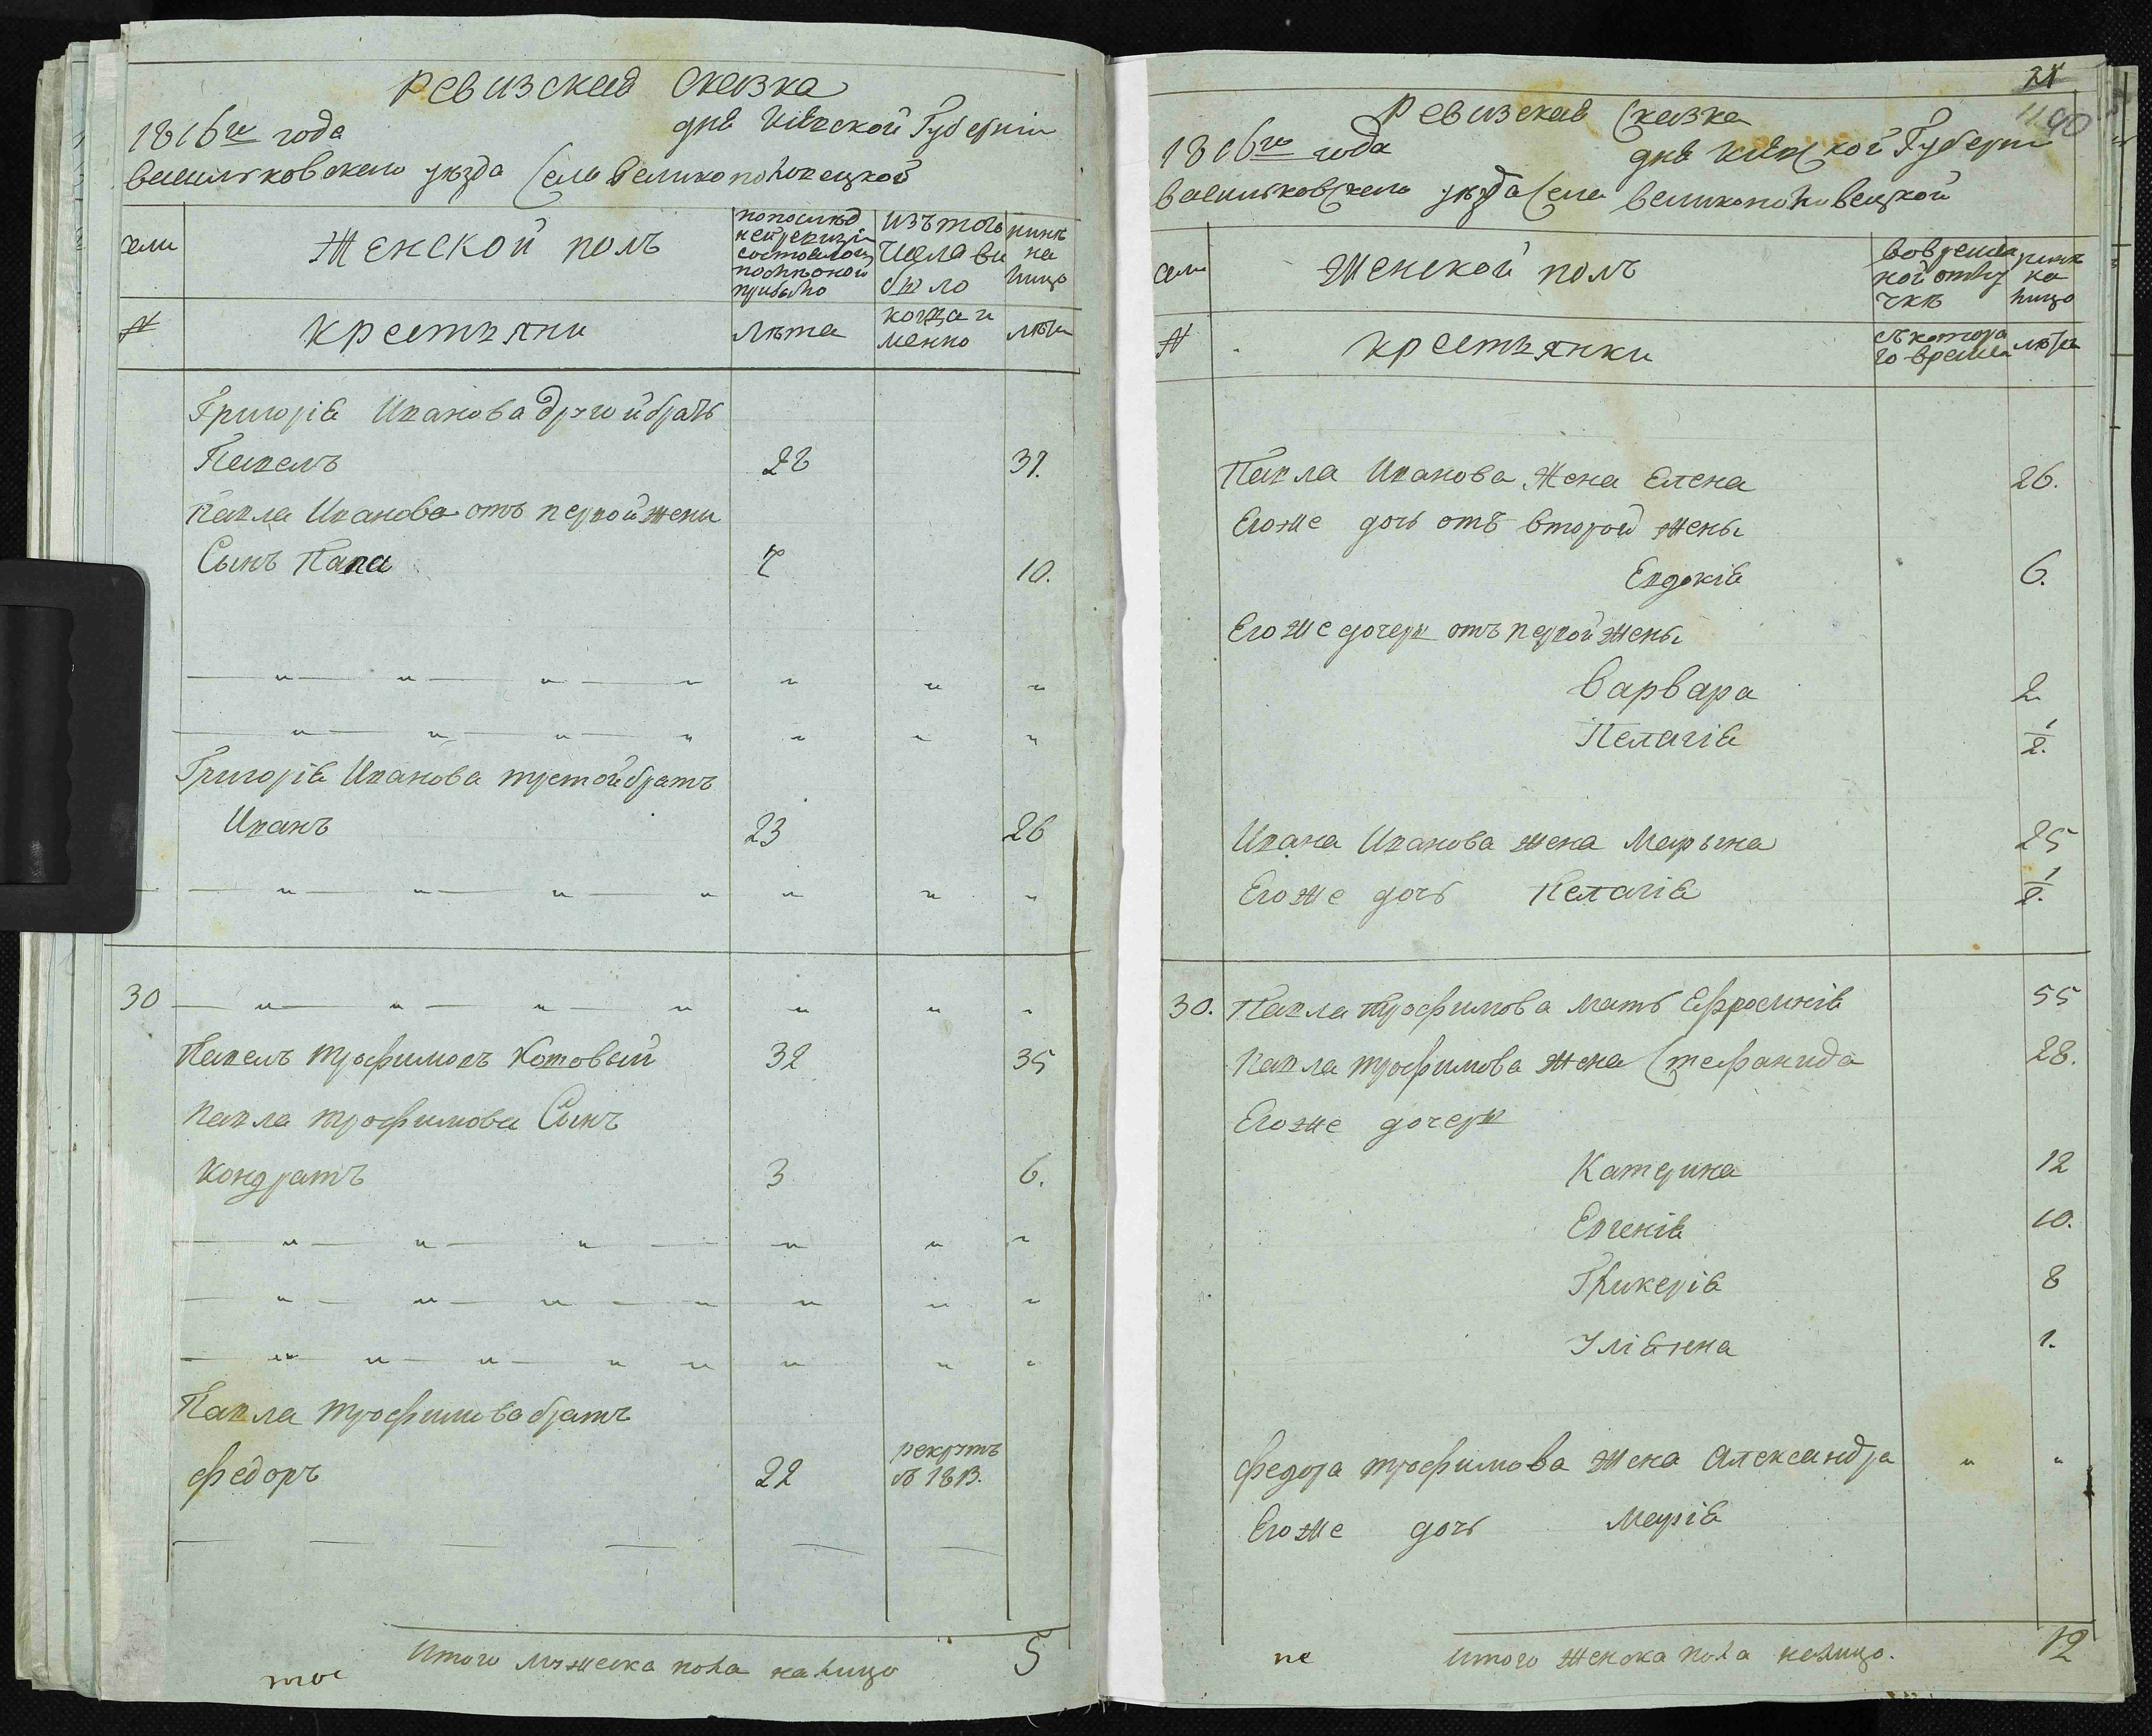 Ревизская Сказка
1816го года дня Кіевской Губерніи
васильковского уезда Села Великополовецкой
семи
Женской полъ
попослед
ней ревизіи
состоялось
и после оной
прибыло
изъ того
числа вы
было
ныне
на
лицо
№
крестьяни
Лета
когда и
менно
лета
Григорія Иванова другой братъ
Павелъ 28 31.
Павла Иванова отъ первой жени
Сынъ Папа 7 10.
Григорія Иванова третой братъ
Иванъ 23 26
30
Павелъ трофимовъ Котовый 32 35
Павла трофимова Сынъ
Кондратъ 3 6.
Павла трофимова братъ
федоръ 22 рекрутъ
въ 1813.
Итого мужеска пола налицо 5
21
1190
Ревизская Сказка
1816го года дня Кіевской Губерніи
васильковского уезда Села великополовецкой
семи
Женской полъ
вовремен
ной отлу
чке
ныне
на
лицо
№
крестьянки
съ котора
го времени
лета
Павла Иванова Жена Елена 26.
Его же дочь отъ второй жены
Евдокія 6.
Его же дочери отъ первой жены
варвара 2
Пелагія 1/2.
Ивана Иванова жена Марына 25
Его же дочь Пелагія 1/2.
30. Павла трофимова мать Ефросинія 55
Павла трофимова жена Стефанида 28.
Его же дочери
Катерина 12
Евгенія 10.
Гликерія 8
Уліянна 1.
федора трофимова жена Александра " "
Его же дочь Марія
Итого женска пола налицо. 12